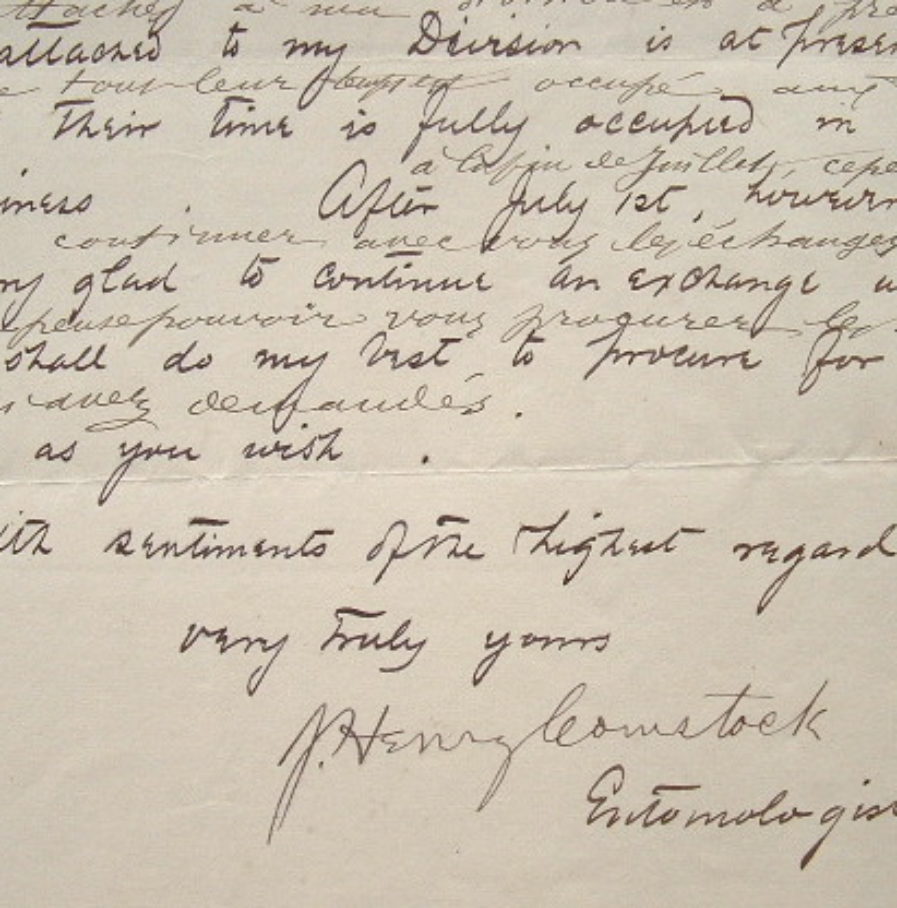 attachés à ma
attached to my Division is at presen
tout leur temps est occupé aux
their time is fully occupied in
à la fin de Juillet, cepe
iness. After July 1st, however
continuer avec vous les échanges
ry glad to continue an exchange w
pense pouvoir vous procurer les
shall do my best to procure for
avez demandés.
as you wish.
ith sentiments of the highest regard
very truly yours
J. Henry Comstock
Entomologis